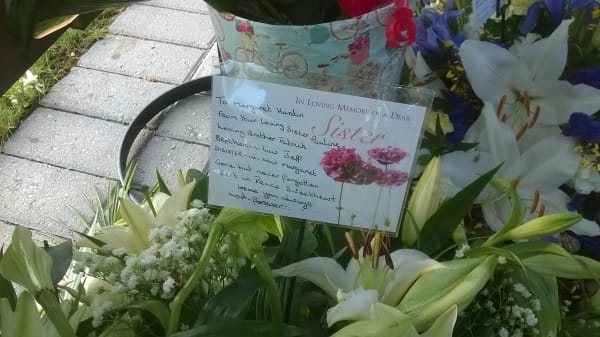 In Loving Memory of a Dear
Sister
To Margaret Hardin
From Your Loving Sister Pauline
Loving Brother Patrick
Brother-in-Law Jeff
Sister-in-Law Margaret
Gone but never forgotten
Rest in Peace Sweetheart
Love you always
forever